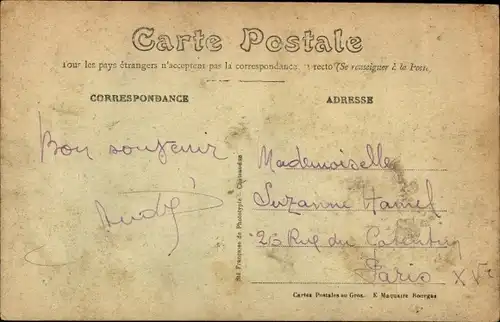 Carte Postale
Tous les pays étrangers n'acceptent pas la correspondance au recto (Se renseigner à la Poste
CORRESPONDANCE
ADRESSE
Bon souvenir
André
Mademoiselle
Suzanne Hamel
26 Rue du Cotentin
Paris XVe
Sté Française de Phototypie - Châteaudun
Cartes Postales en Gros. E Maquaire Bourges